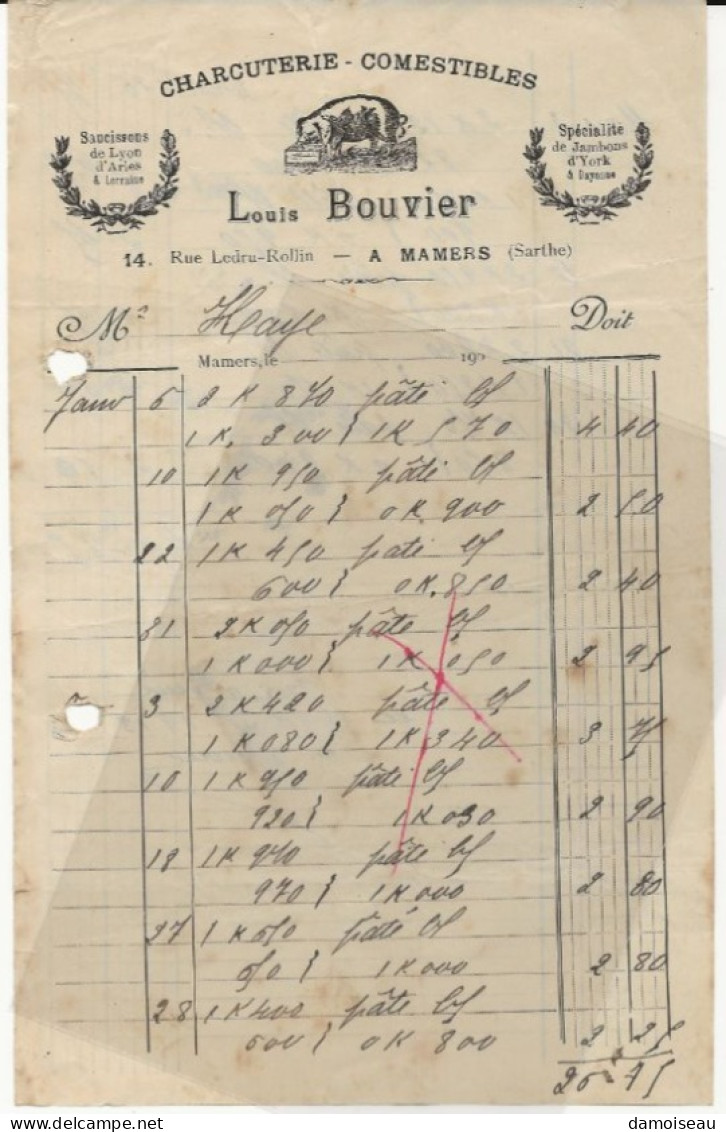 CHARCUTERIE - COMESTIBLES
Saucissons
de Lyon
d'Arles
& Lorraine
Spécialité
de Jambons
d'York
& Bayonne
Louis Bouvier
14. Rue Ledru-Rollin — A MAMERS (Sarthe)
Mr Haye Doit
Mamers, le 190
Janv 6 2 K 870 pâté
1 K. 300 } 1 K 570 4 40
10 1 K 950 pâté
1 K 050 } 0 K. 900 2 50
22 1 K 450 pâté
600 } 0 K. 850 2 40
31 2 K 050 pâté
1 K 000 } 1 K 050 2 95
3 2 K 420 pâté
1 K 080 } 1 K 340 3 75
10 1 K 950 pâté
920 } 1 K 030 2 90
18 1 K 970 pâté
970 } 1 K 000 2 80
27 1 K 650 pâté
650 } 1 K 000 2 80
28 1 K 400 pâté
600 } 0 K 800 2 25
26 75
damoiseau